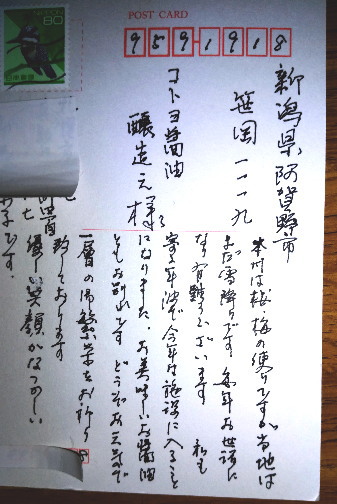 NIPPON
80
日本郵便
POST CARD
959-1918
新潟県阿賀野市
笹岡一一一九
コトヨ醤油
醸造元様
本州は桜、梅の便りですが当地は
まだ雪降りです 毎年お世話に
なり有難うございます 私も
寄る年波で今年は施設に入ること
になりました。お美味しいお醤油
ともお別れです どうぞお元気で
一層の御繁栄をお祈り
致しております
優しい笑顔がなつかしい
です。